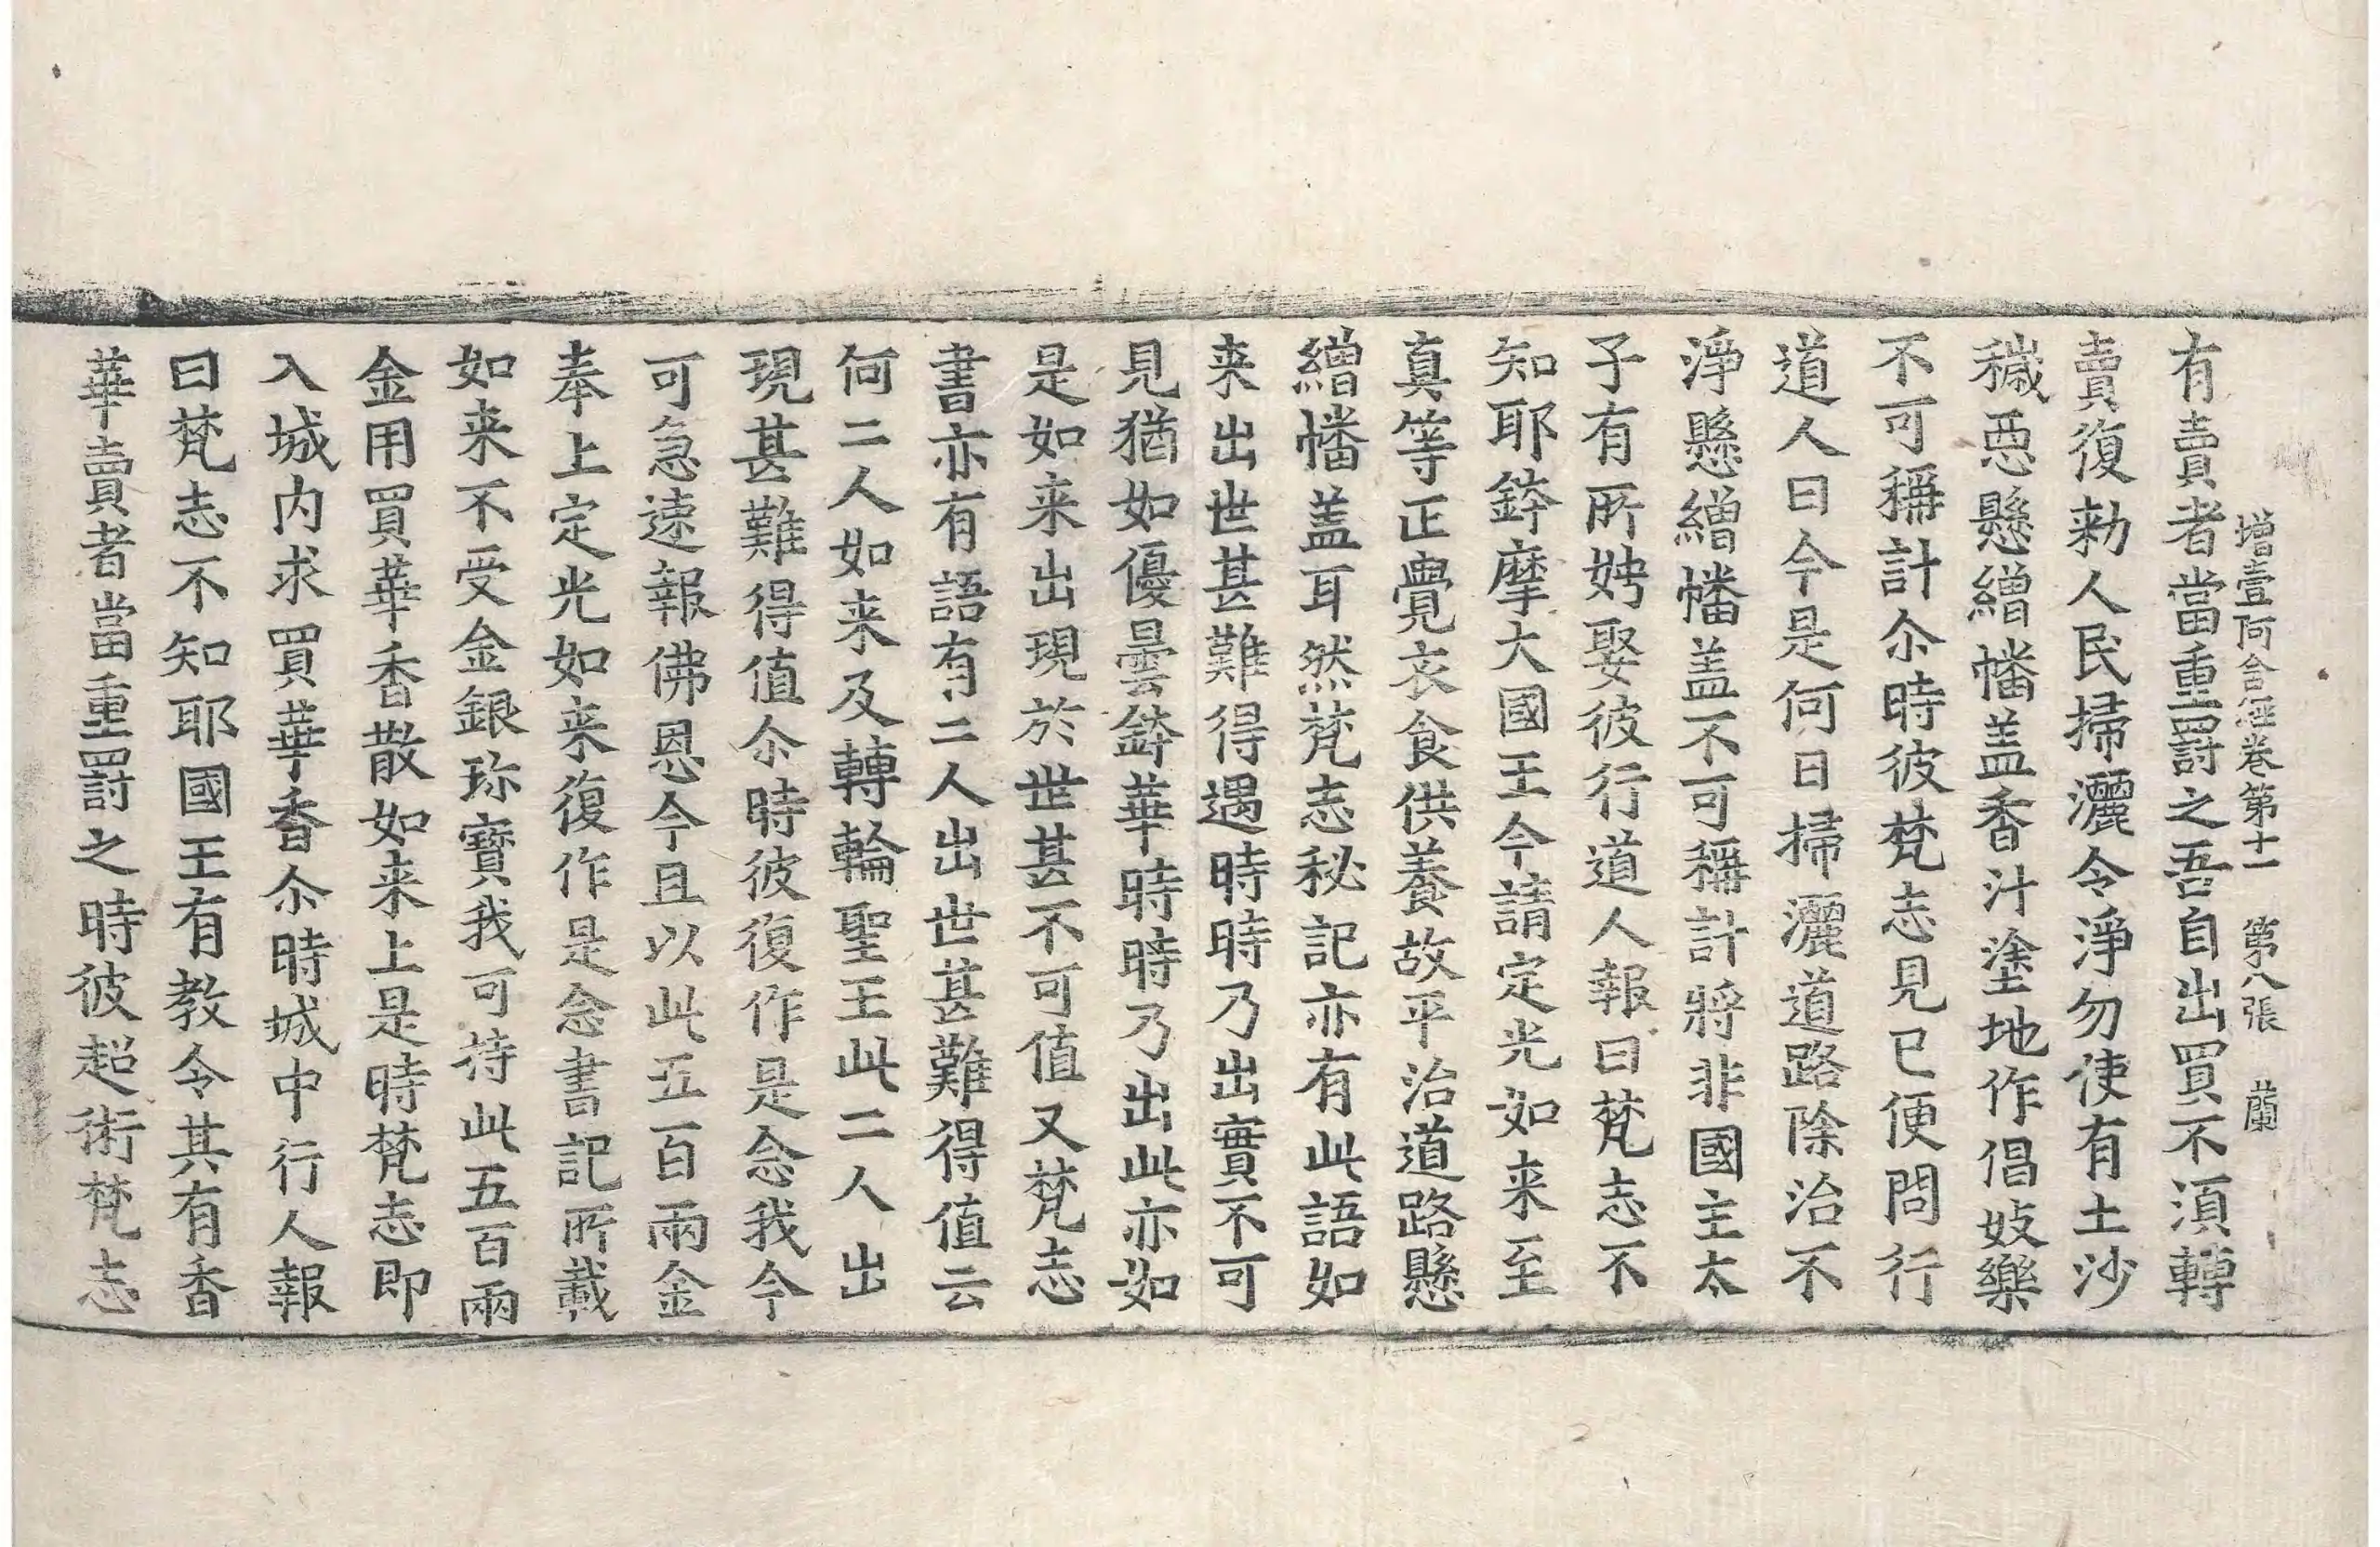 增壹阿含經卷第十一 第八張 蘭
有賣者當重罰之吾自出買不須轉
賣復勑人民掃灑令淨勿使有土沙
穢惡懸繒幡盖香汁塗地作倡妓樂
不可稱計尒時彼梵志見已便問行
道人曰今是何日掃灑道路除治不
淨懸繒幡盖不可稱計將非國主太
子有所娉娶彼行道人報曰梵志不
知耶鉢摩大國王今請定光如来至
真等正覺衣食供養故平治道路懸
繒幡盖耳然梵志秘記亦有此語如
来出世甚難得遇時時乃出實不可
見猶如優曇鉢華時時乃出此亦如
是如来出現於世甚不可值又梵志
書亦有語有二人出世甚難得值云
何二人如来及轉輪聖王此二人出
現甚難得值尒時彼復作是念我今
可急速報佛恩今且以此五百兩金
奉上定光如来復作是念書記所載
如来不受金銀珎寶我可持此五百兩
金用買華香散如来上是時梵志即
入城内求買華香尒時城中行人報
曰梵志不知耶國王有教令其有香
華賣者當重罰之時彼超術梵志